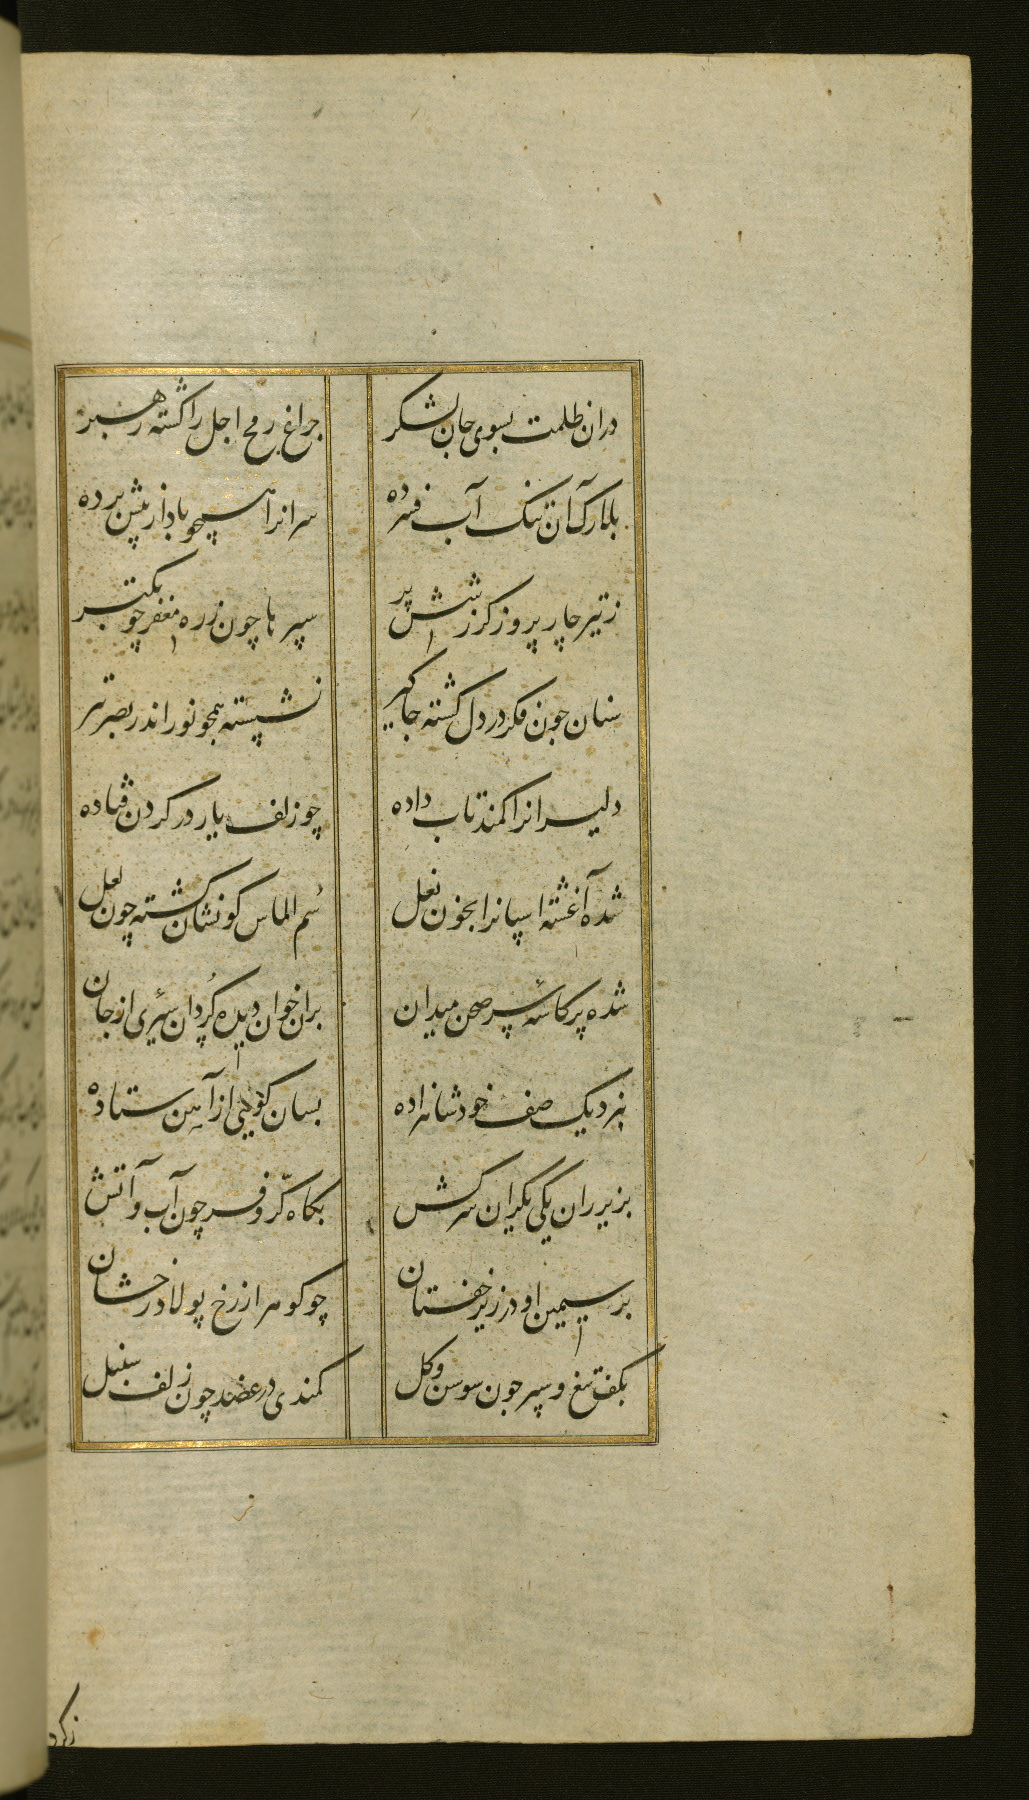 دران ظلمت بسوی جان لشکر
چراغ رمح اجل را گشته رهبر
بلارک آن تنک آب فسرده
سرانرا همچو باد از پیش برده
ز تیر چار پر وز گرز شش پر
سپرها چون زره مغفر چو بکتر
سنان چون فکر در دل گشته جاگیر
نشسته همچو نور اندر بصر تیر
دلیرانرا کمند تاب داده
چو زلف یار در گردن فتاده
شده آغشته اسپانرا بخون نعل
سم الماس گونشان گشته چون لعل
شده پر کاسهٔ سر صحن میدان
بران خوان دیده گردان سیری از جان
بنزدیک صف خود شاهزاده
بسان کوهی از آهن ستاده
بزیر ران یکی یکران سرکش
بگاه کرّ و فر چون آب و آتش
بر سیمین او در زیر خفتان
چو گوهر از رخ پولاد رخشان
بکف تیغ و سپر چون سوسن و گل
کمندی در عضد چون زلف سنبل